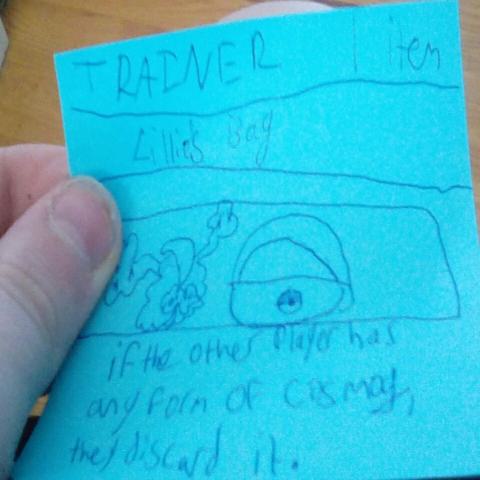 TRAINER | item
Lillie's Bag
if the other player has
any form of cosmog,
they discard it.